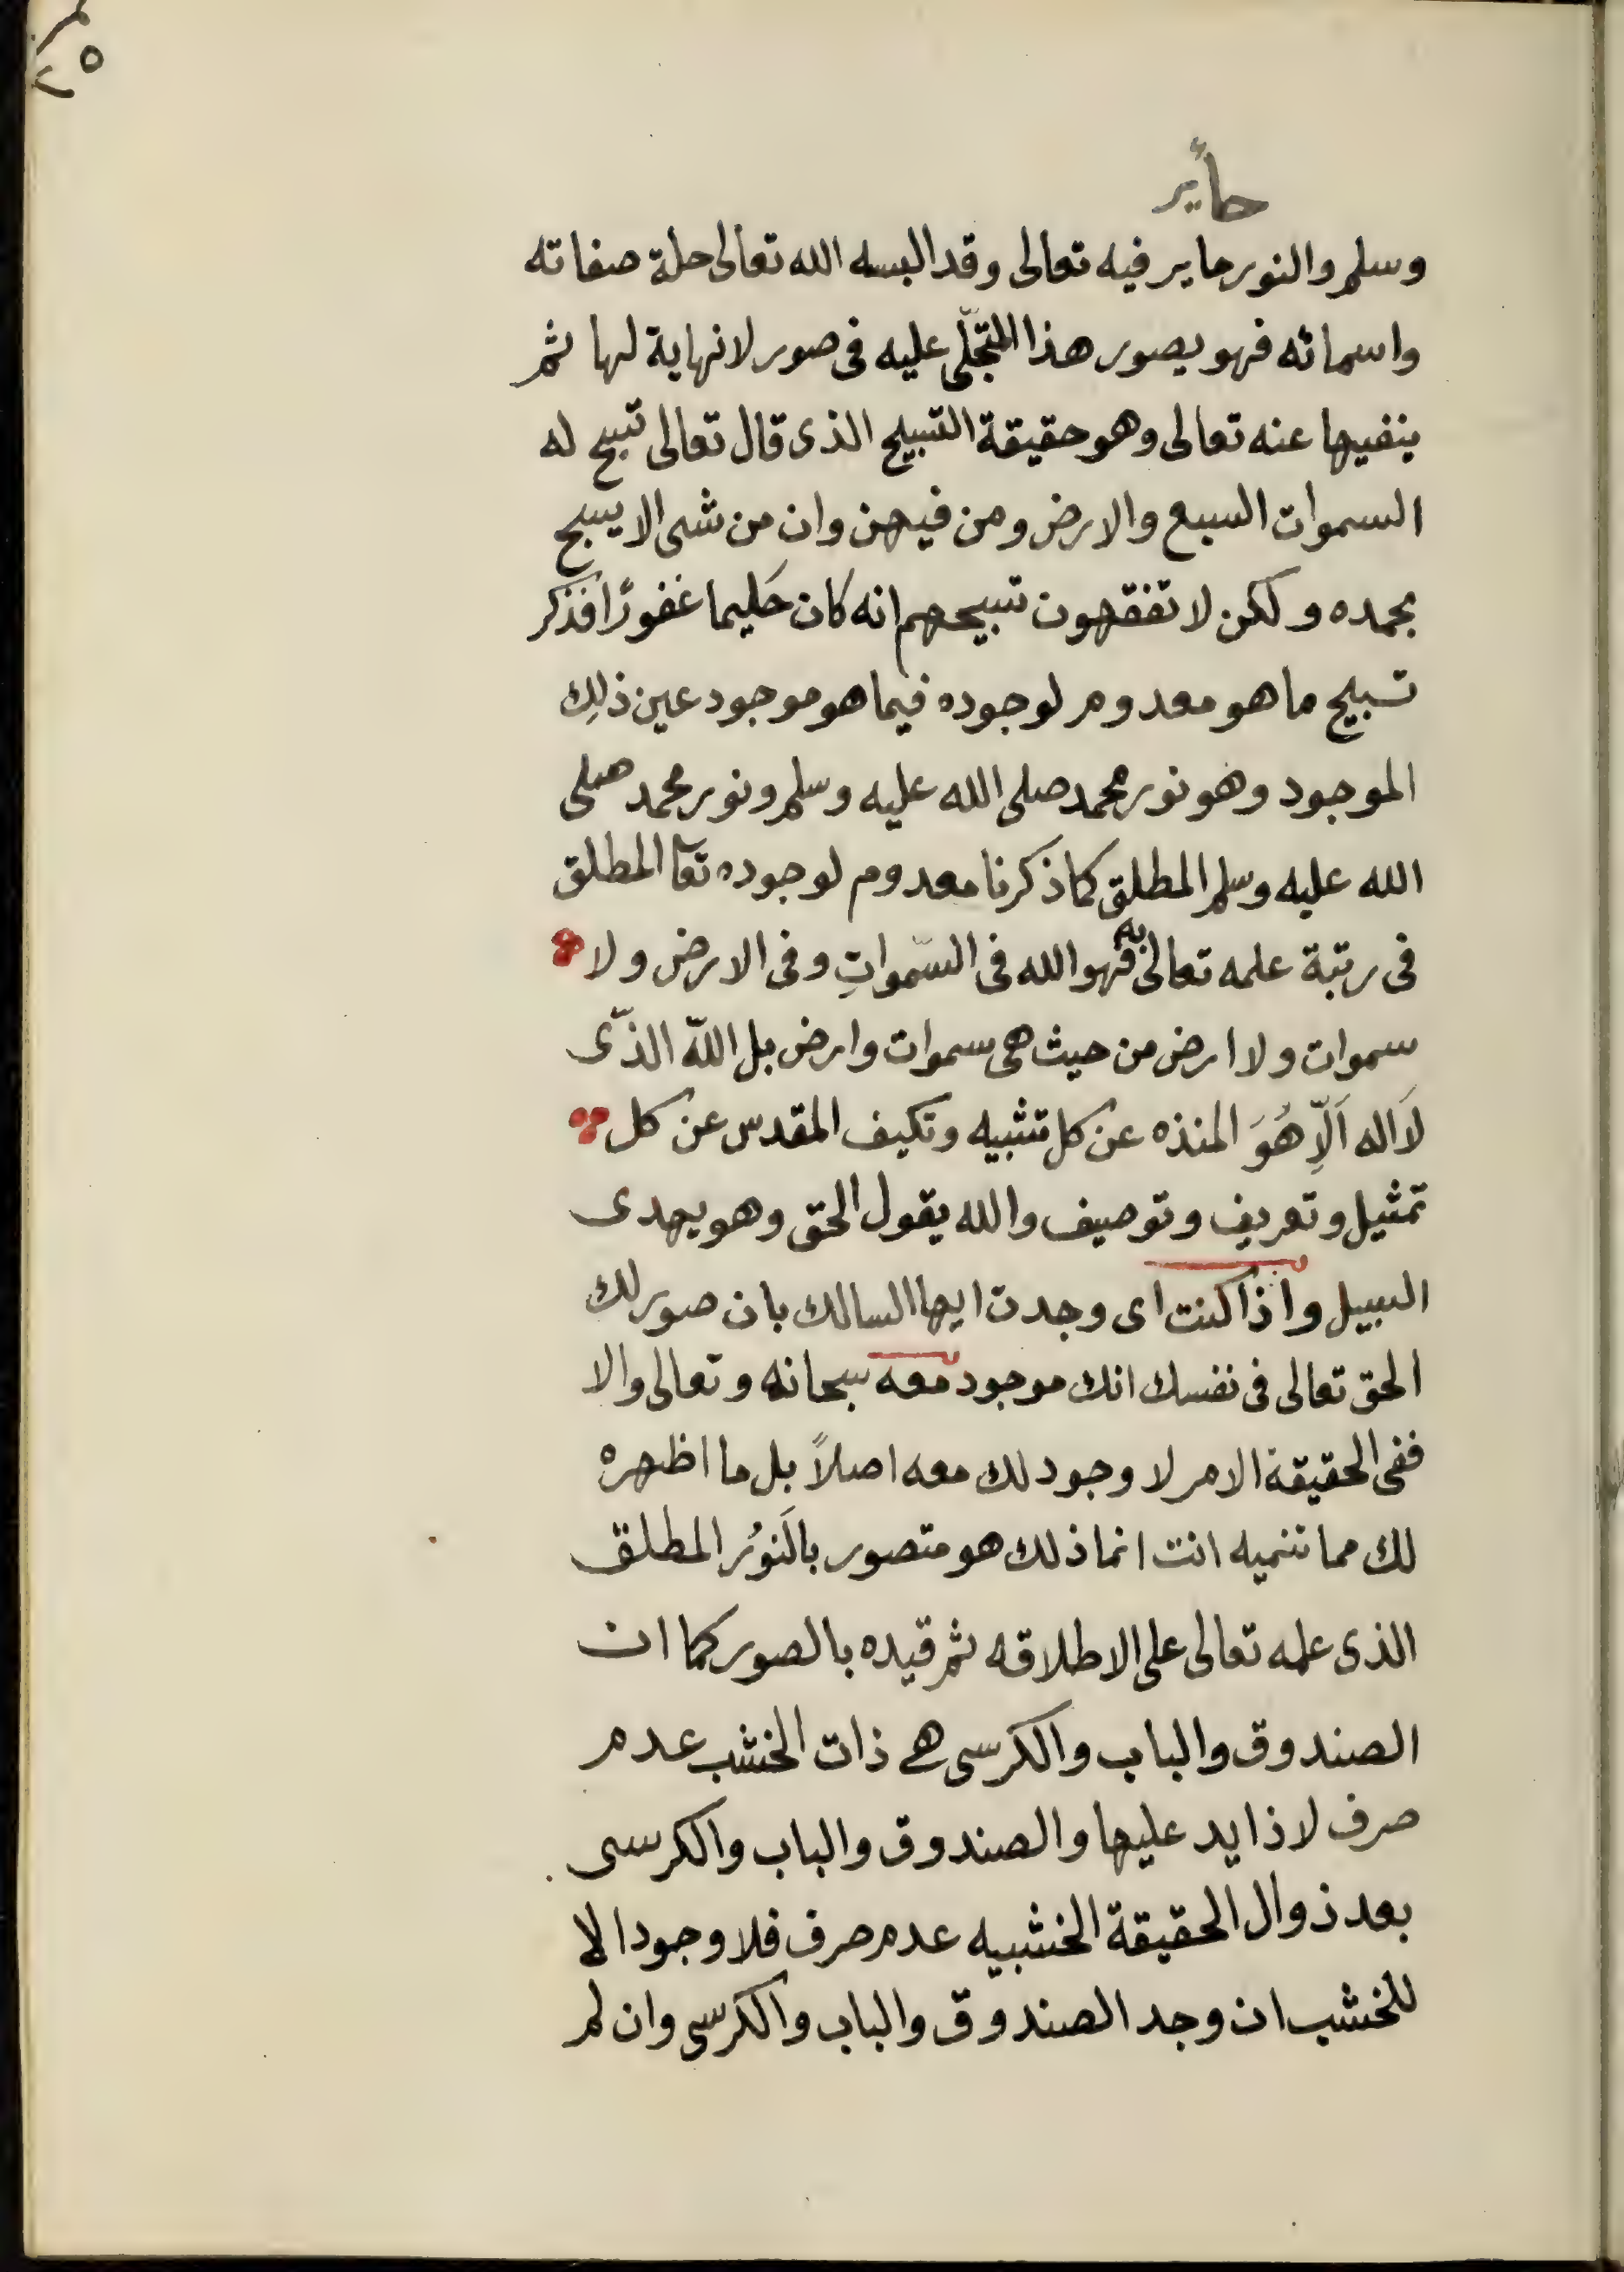 ٢٥
حأير
وسلم والنور حاير فيه تعالى وقد البسه الله تعالى حلة صفاته
واسمائه فهو يصور هذا المتجلّى عليه فى صور لا نهاية لها ثم
ينفيها عنه تعالى وهو حقيقة التسبيح الذى قال تعالى تسبح له
السموات السبع والارض ومن فيهن وان من شى الا يسبح
بحمده ولكن لا تفقهون تسبيحهم انه كان حَليما غفورًا فذكر
تسبيح ما هو معدوم لوجوده فيما هو موجود عين ذلِك
الموجود وهو نور محمد صلى الله عليه وسلم ونور محمد صلى
الله عليه وسلم المطلق كما ذكرنا معدوم لوجوده تعآ المطلق
فى رتبة علمه تعالى به فهو الله فى السّمواتِ وفى الارض ولا
سموات ولا ارض من حيث هى سموات وارض بل اللّه الذّى
لَا اله اَلّاِ هُوَ المنذه عن كل تشبيه وتكيف المقدس عن كل
تمثيل وتعريف وتوصيف والله يقول الحق وهو يهدى
السبيل واذا كنت اى وجدت ايها السالك بان صور لك
الحق تعالى فى نفسك انك موجود معه سبحانه وتعالى والا
ففى الحقيقة الامر لا وجود لك معه اصلاً بل ما اظهره
لك مما تنميه انت انما ذلك هو متصور بالَنوُر المطلق
الذى علمه تعالى على الاطلاقه ثم قيده بالصور كما ان
الصندوق والباب والكرسى هے ذات الخشب عدم
صرف لا ذايد عليها والصندوق والباب والكرسى
بعد ذوال الحقيقة الخشبيه عدم صرف فلا وجود الا
للخشب ان وجد الصندوق والباب والكرسى وان لم